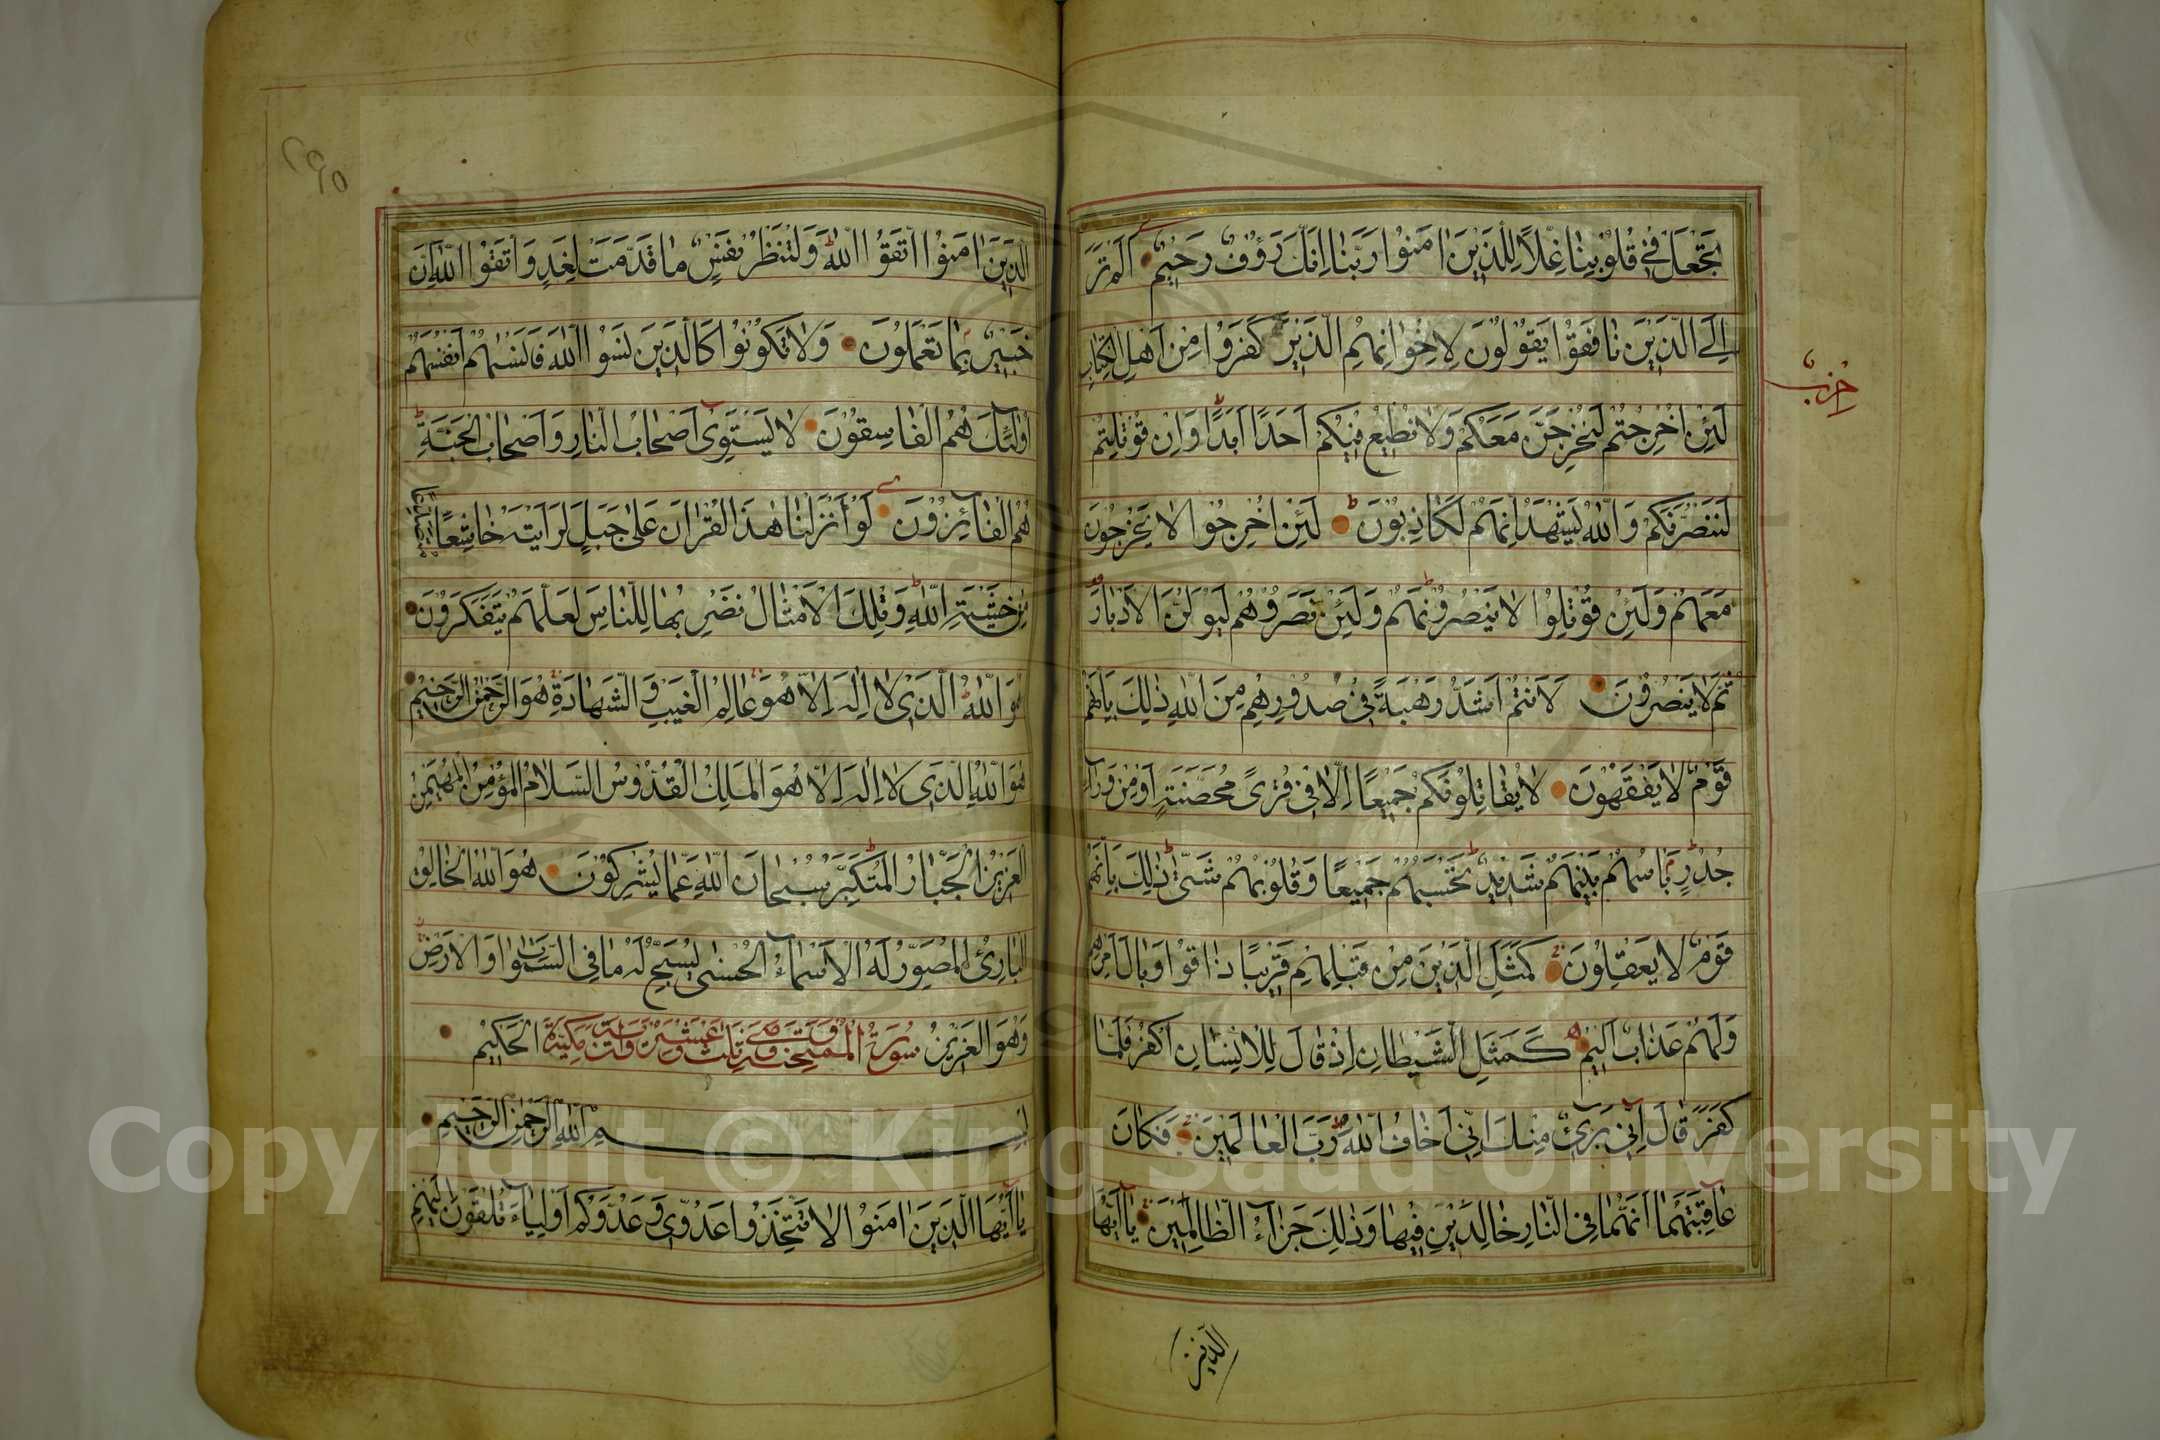 تَجْعَلْ فِي قُلُوبِنَا غِلًّا لِلَّذِينَ اٰمَنُوا رَبَّنَا اِنَّكَ رَؤُفٌ رَحِيمٌ اَلَمْ تَرَ
اِلَى الَّذِينَ نَافَقُوا يَقُولُونَ لِاِخْوَانِهِمُ الَّذِينَ كَفَرُوا مِنْ اَهْلِ الْكِتَابِ
حزب
لَئِنْ اُخْرِجْتُمْ لَنَخْرُجَنَّ مَعَكُمْ وَلَا نُطِيعُ فِيكُمْ اَحَدًا اَبَدًا وَاِنْ قُوتِلْتُمْ
لَنَنْصُرَنَّكُمْ وَاللّٰهُ يَشْهَدُ اِنَّهُمْ لَكَاذِبُونَ لَئِنْ اُخْرِجُوا لَا يَخْرُجُونَ
مَعَهُمْ وَلَئِنْ قُوتِلُوا لَا يَنْصُرُونَهُمْ وَلَئِنْ نَصَرُوهُمْ لَيُوَلُّنَّ الْاَدْبَارَ
ثُمَّ لَا يُنْصَرُونَ لَاَنْتُمْ اَشَدُّ رَهْبَةً فِي صُدُورِهِمْ مِنَ اللّٰهِ ذٰلِكَ بِاَنَّهُمْ
قَوْمٌ لَا يَفْقَهُونَ لَا يُقَاتِلُونَكُمْ جَمِيعًا اِلَّا فِي قُرًى مُحَصَّنَةٍ اَوْ مِنْ وَرَاءِ
جُدُرٍ بَاْسُهُمْ بَيْنَهُمْ شَدِيدٌ تَحْسَبُهُمْ جَمِيعًا وَقُلُوبُهُمْ شَتّٰى ذٰلِكَ بِاَنَّهُمْ
قَوْمٌ لَا يَعْقِلُونَ كَمَثَلِ الَّذِينَ مِنْ قَبْلِهِمْ قَرِيبًا ذَاقُوا وَبَالَ اَمْرِهِمْ
وَلَهُمْ عَذَابٌ اَلِيمٌ كَمَثَلِ الشَّيْطَانِ اِذْ قَالَ لِلْاِنْسَانِ اكْفُرْ فَلَمَّا
كَفَرَ قَالَ اِنِّي بَرِيءٌ مِنْكَ اِنِّي اَخَافُ اللّٰهَ رَبَّ الْعَالَمِينَ فَكَانَ
عَاقِبَتَهُمَا اَنَّهُمَا فِي النَّارِ خَالِدَيْنِ فِيهَا وَذٰلِكَ جَزَاءُ الظَّالِمِينَ يَا اَيُّهَا
الذين
الَّذِينَ اٰمَنُوا اتَّقُوا اللّٰهَ وَلْتَنْظُرْ نَفْسٌ مَا قَدَّمَتْ لِغَدٍ وَاتَّقُوا اللّٰهَ اِنَّ
خَبِيرٌ بِمَا تَعْمَلُونَ وَلَا تَكُونُوا كَالَّذِينَ نَسُوا اللّٰهَ فَاَنْسٰهُمْ اَنْفُسَهُمْ
اُولٰئِكَ هُمُ الْفَاسِقُونَ لَا يَسْتَوِي اَصْحَابُ النَّارِ وَاَصْحَابُ الْجَنَّةِ
هُمُ الْفَائِزُونَ لَوْ اَنْزَلْنَا هٰذَا الْقُرْاٰنَ عَلٰى جَبَلٍ لَرَاَيْتَهُ خَاشِعًا مُتَصَدِّعًا
مِنْ خَشْيَةِ اللّٰهِ وَتِلْكَ الْاَمْثَالُ نَضْرِبُهَا لِلنَّاسِ لَعَلَّهُمْ يَتَفَكَّرُونَ
هُوَ اللّٰهُ الَّذِي لَا اِلٰهَ اِلَّا هُوَ عَالِمُ الْغَيْبِ وَالشَّهَادَةِ هُوَ الرَّحْمٰنُ الرَّحِيمُ
هُوَ اللّٰهُ الَّذِي لَا اِلٰهَ اِلَّا هُوَ الْمَلِكُ الْقُدُّوسُ السَّلَامُ الْمُؤْمِنُ الْمُهَيْمِنُ
الْعَزِيزُ الْجَبَّارُ الْمُتَكَبِّرُ سُبْحَانَ اللّٰهِ عَمَّا يُشْرِكُونَ هُوَ اللّٰهُ الْخَالِقُ
الْبَارِئُ الْمُصَوِّرُ لَهُ الْاَسْمَاءُ الْحُسْنٰى يُسَبِّحُ لَهُ مَا فِي السَّمٰوَاتِ وَالْاَرْضِ
وَهُوَ الْعَزِيزُ الْحَكِيمُ سُورَةُ الْمُمْتَحَنَةِ
بِسْمِ اللّٰهِ الرَّحْمٰنِ الرَّحِيمِ
يَا اَيُّهَا الَّذِينَ اٰمَنُوا لَا تَتَّخِذُوا عَدُوِّي وَعَدُوَّكُمْ اَوْلِيَاءَ تُلْقُونَ اِلَيْهِمْ
Copyright © King Saud University